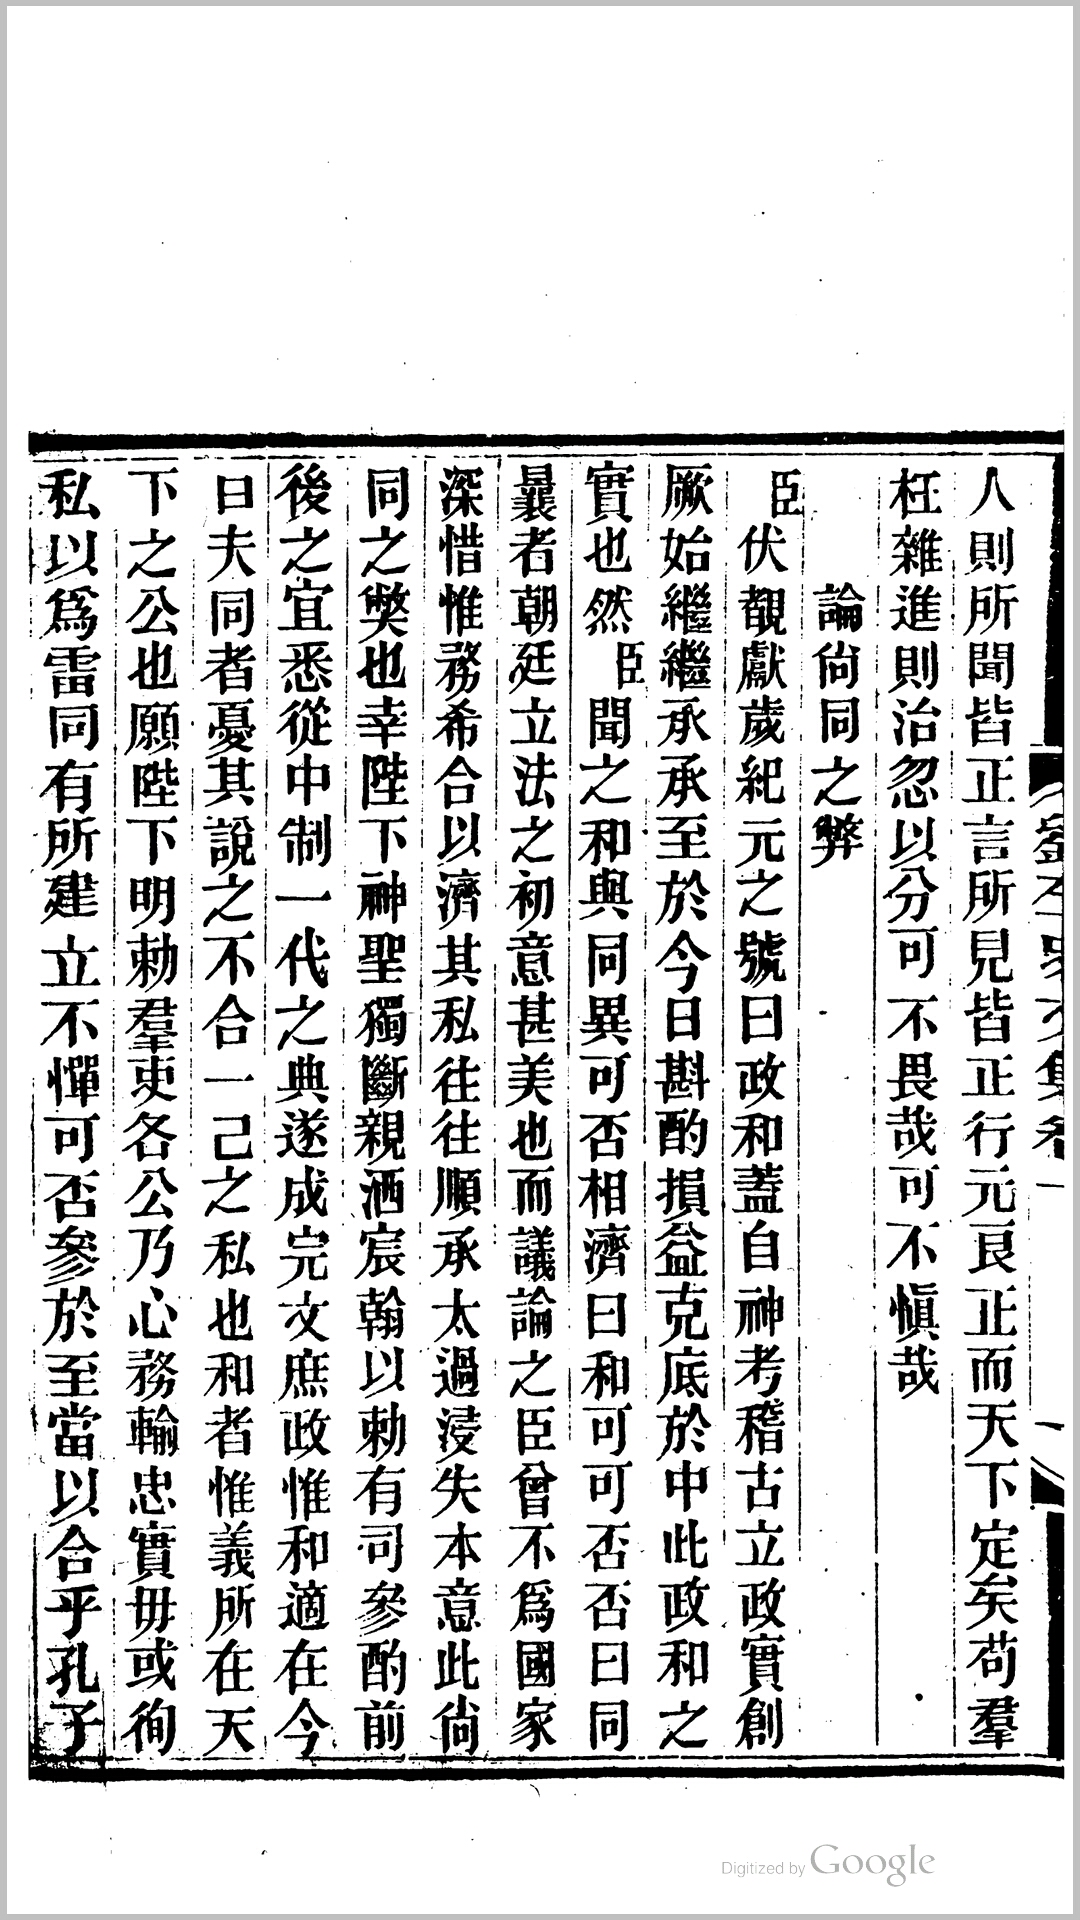 人則所聞皆正言所見皆正行元良正而天下定矣苟羣
枉雜進則治忽以分可不畏哉可不愼哉
論尙同之弊
臣伏覩獻歲紀元之號曰政和蓋自神考稽古立政實創
厥始繼繼承承至於今日斟酌損益克底於中此政和之
實也然臣聞之和與同異可否相濟曰和可可否否曰同
曩者朝廷立法之初意甚美也而議論之臣曾不爲國家
深惜惟務希合以濟其私往往順承太過浸失本意此尙
同之獘也幸陛下神聖獨斷親洒宸翰以勅有司參酌前
後之宜悉從中制一代之典遂成完文庶政惟和適在今
日夫同者憂其說之不合一己之私也和者惟義所在天
下之公也願陛下明勅羣吏各公乃心務輸忠實毋或徇
私以爲雷同有所建立不憚可否參於至當以合乎孔子
Digitized by Google